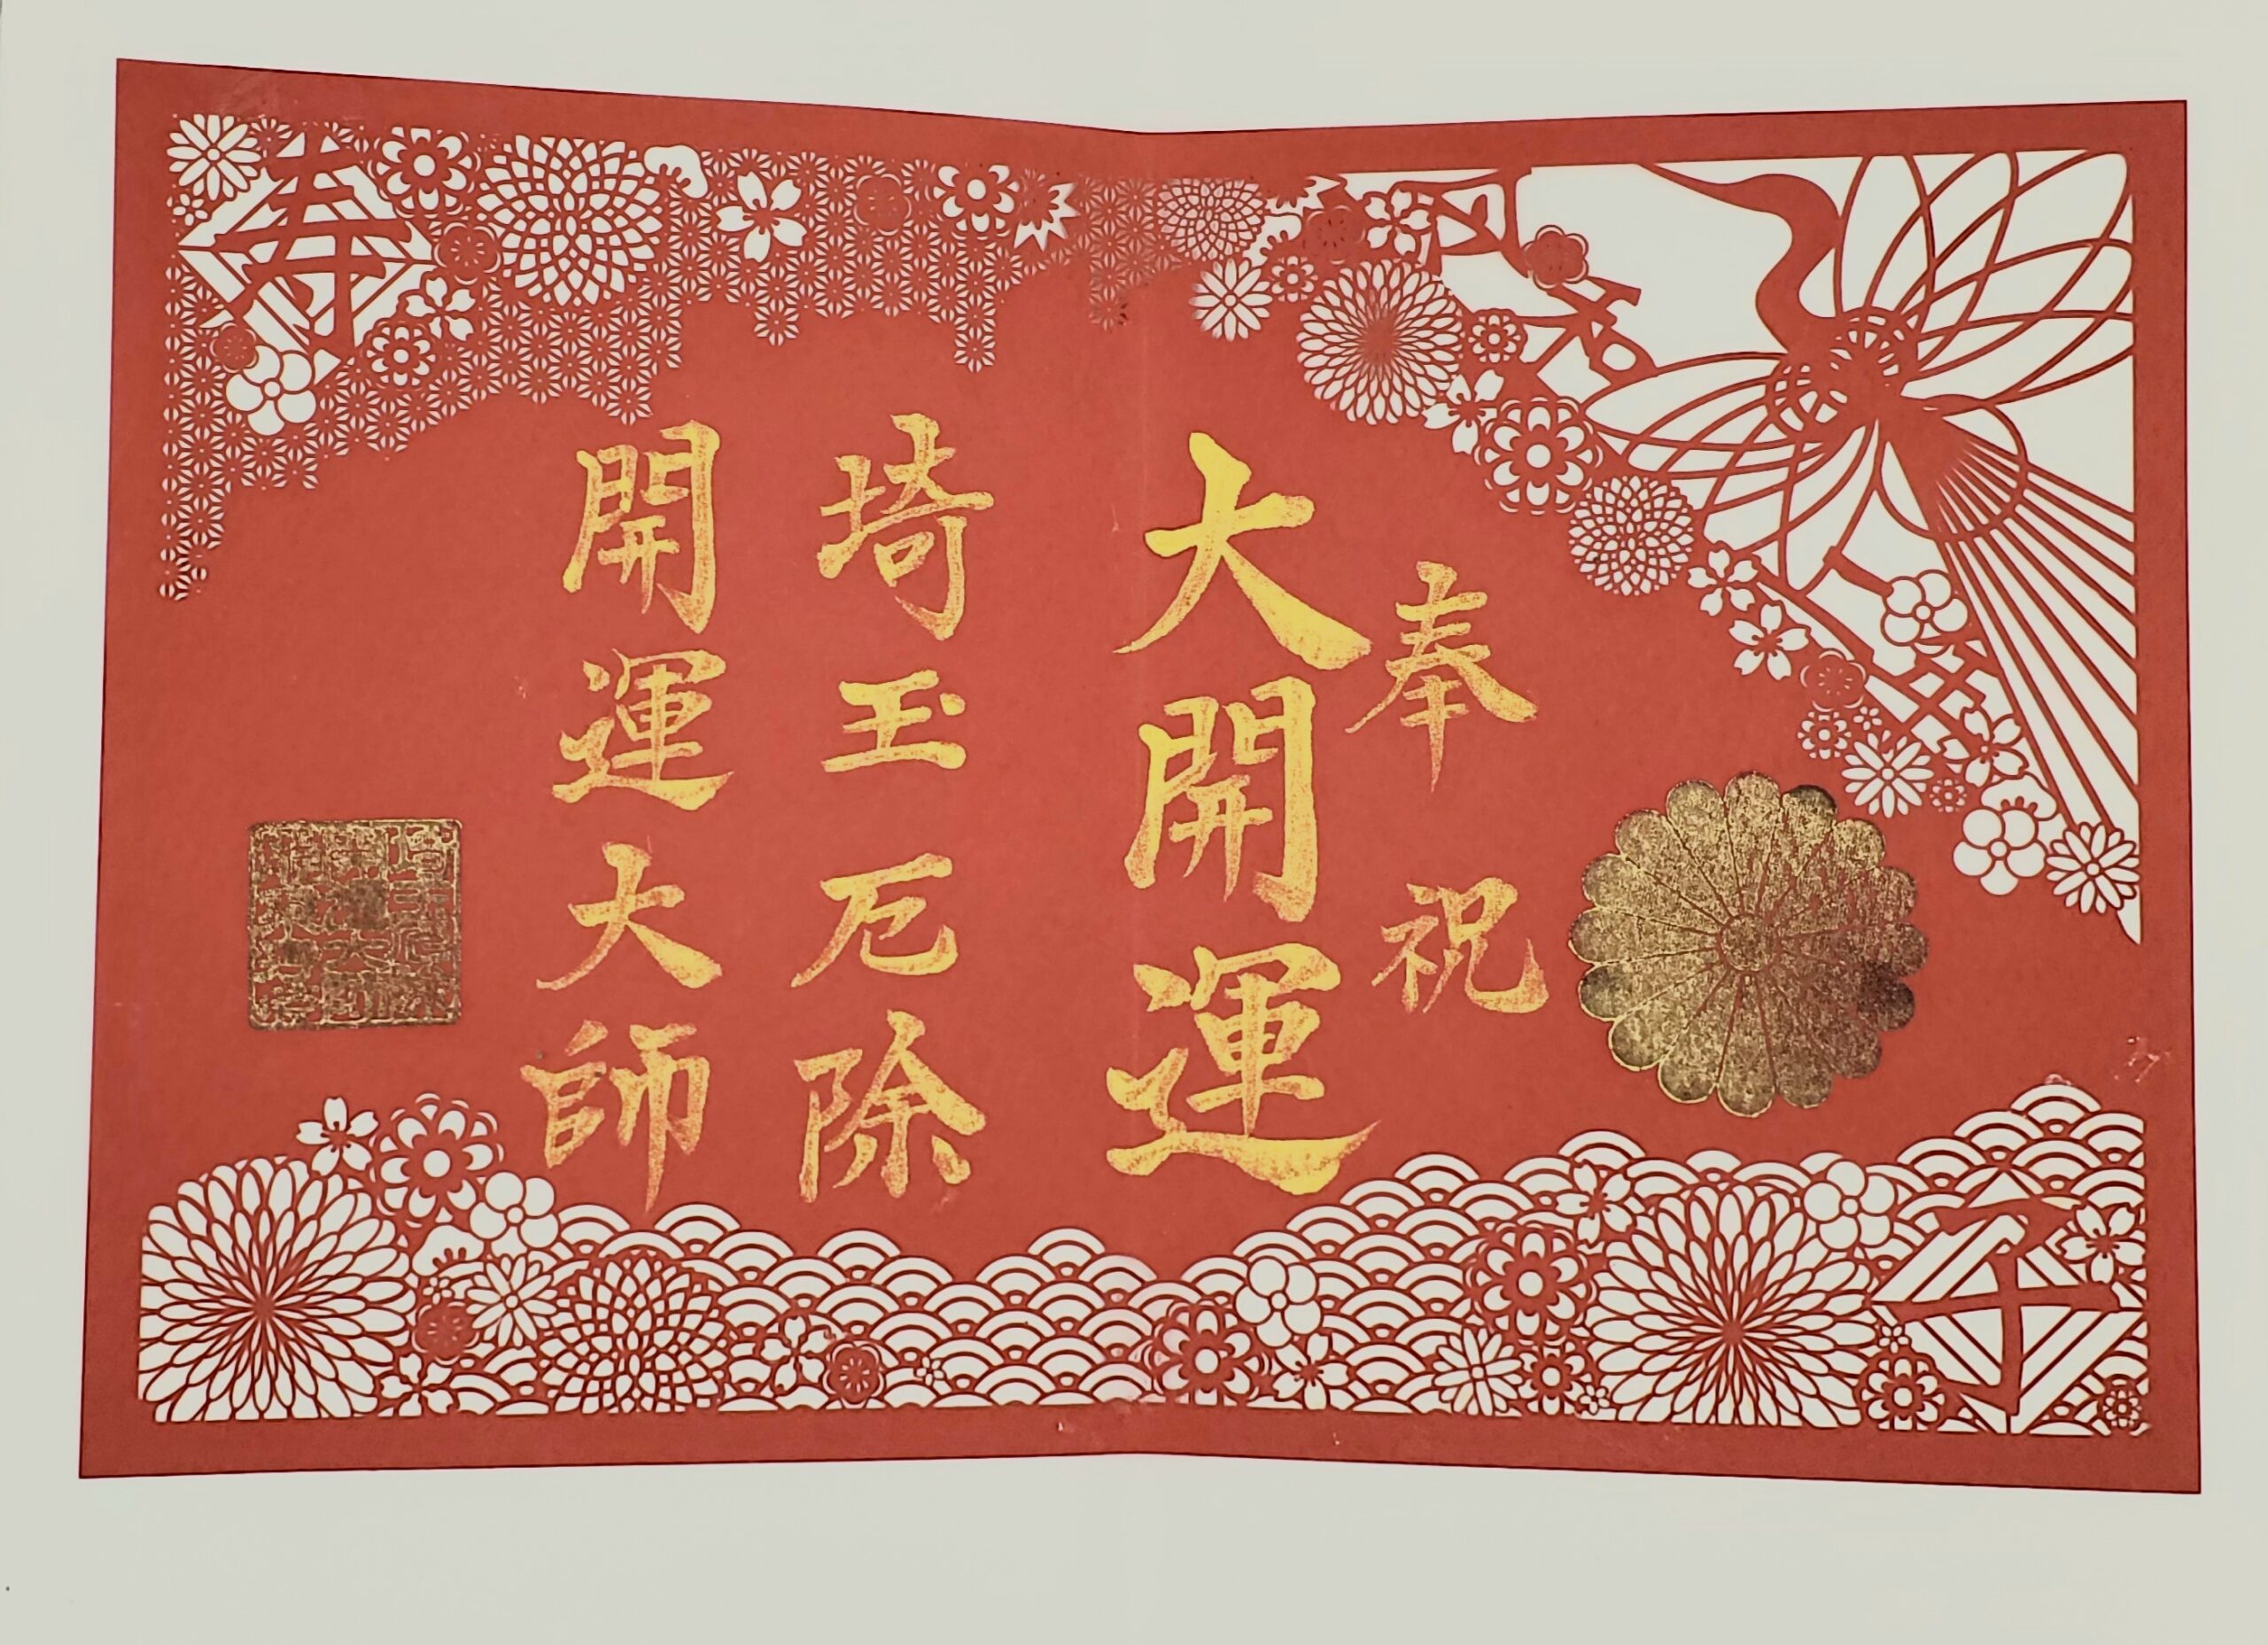 奉祝
大開運
埼玉厄除
開運大師
寿